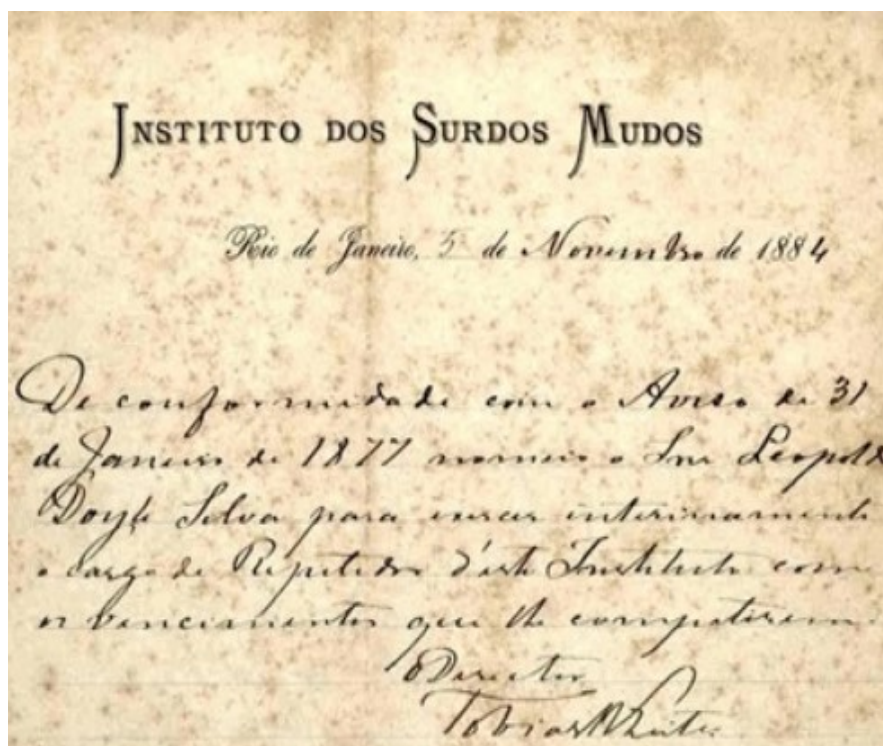 INSTITUTO DOS SURDOS MUDOS
Rio de Janeiro, 5 de Novembro de 1884
De conformidade com o Aviso de 31
de Janeiro de 1877 nomeio o Snr Leopoldo
Doyle Silva para exercer interinamente
o cargo de Repetidor d'este Instituto com
os vencimentos que lhe competirem.
O Director
Tobias R Leite